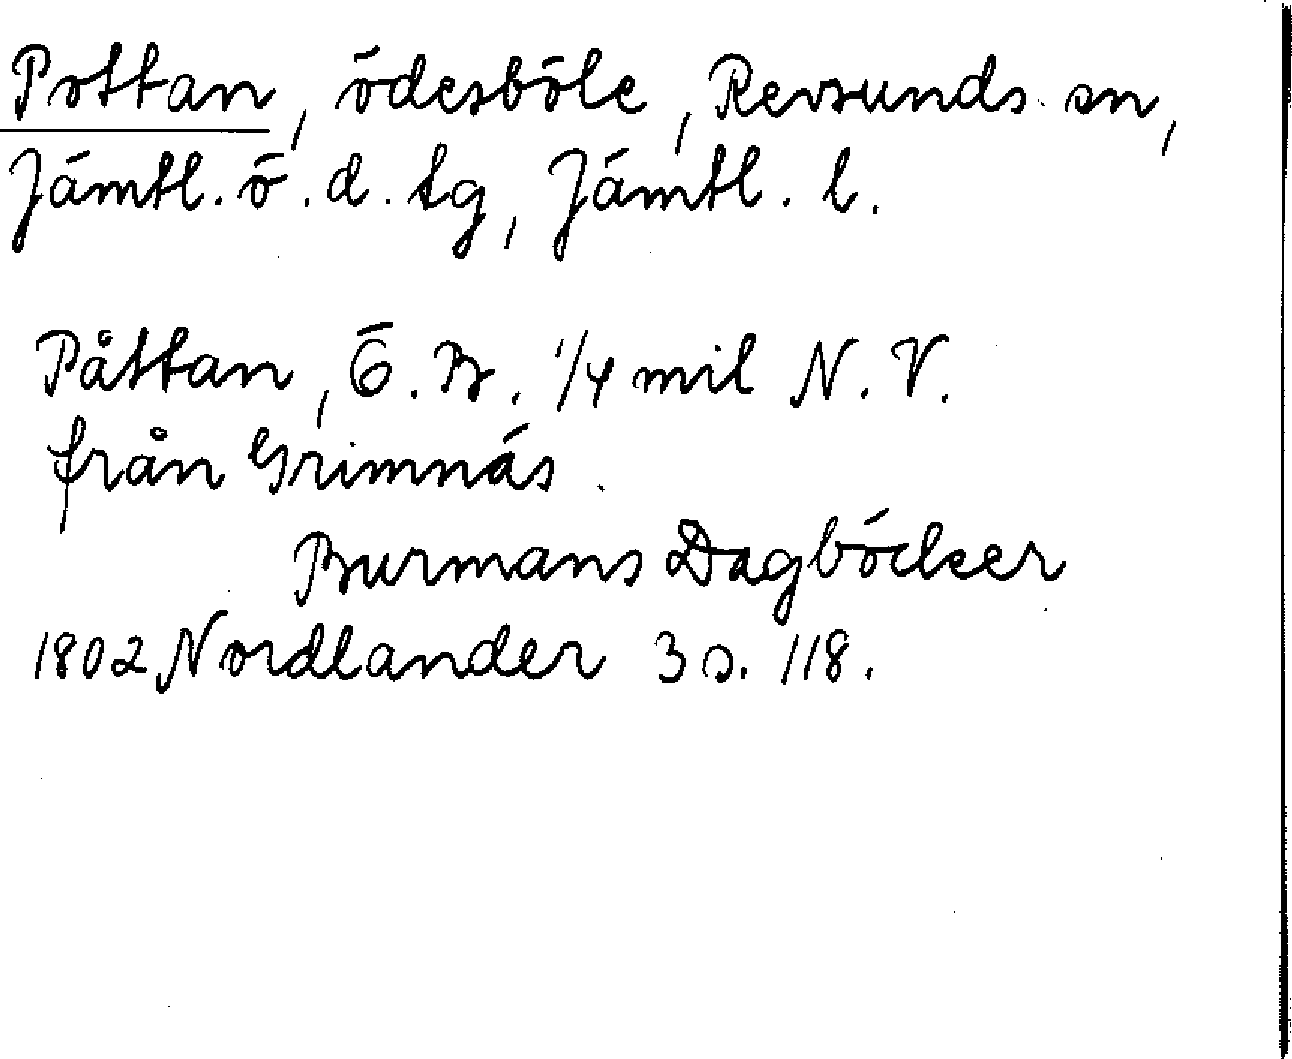 Pottan, ödesböle, Revsunds sn,
Jämtl. ö. d. tg, Jämtl. l.
Påttan, Ö. B. 1/4 mil N. V.
från Grimnäs.
Burmans Dagböcker
1802 Nordlander 3 s. 118.